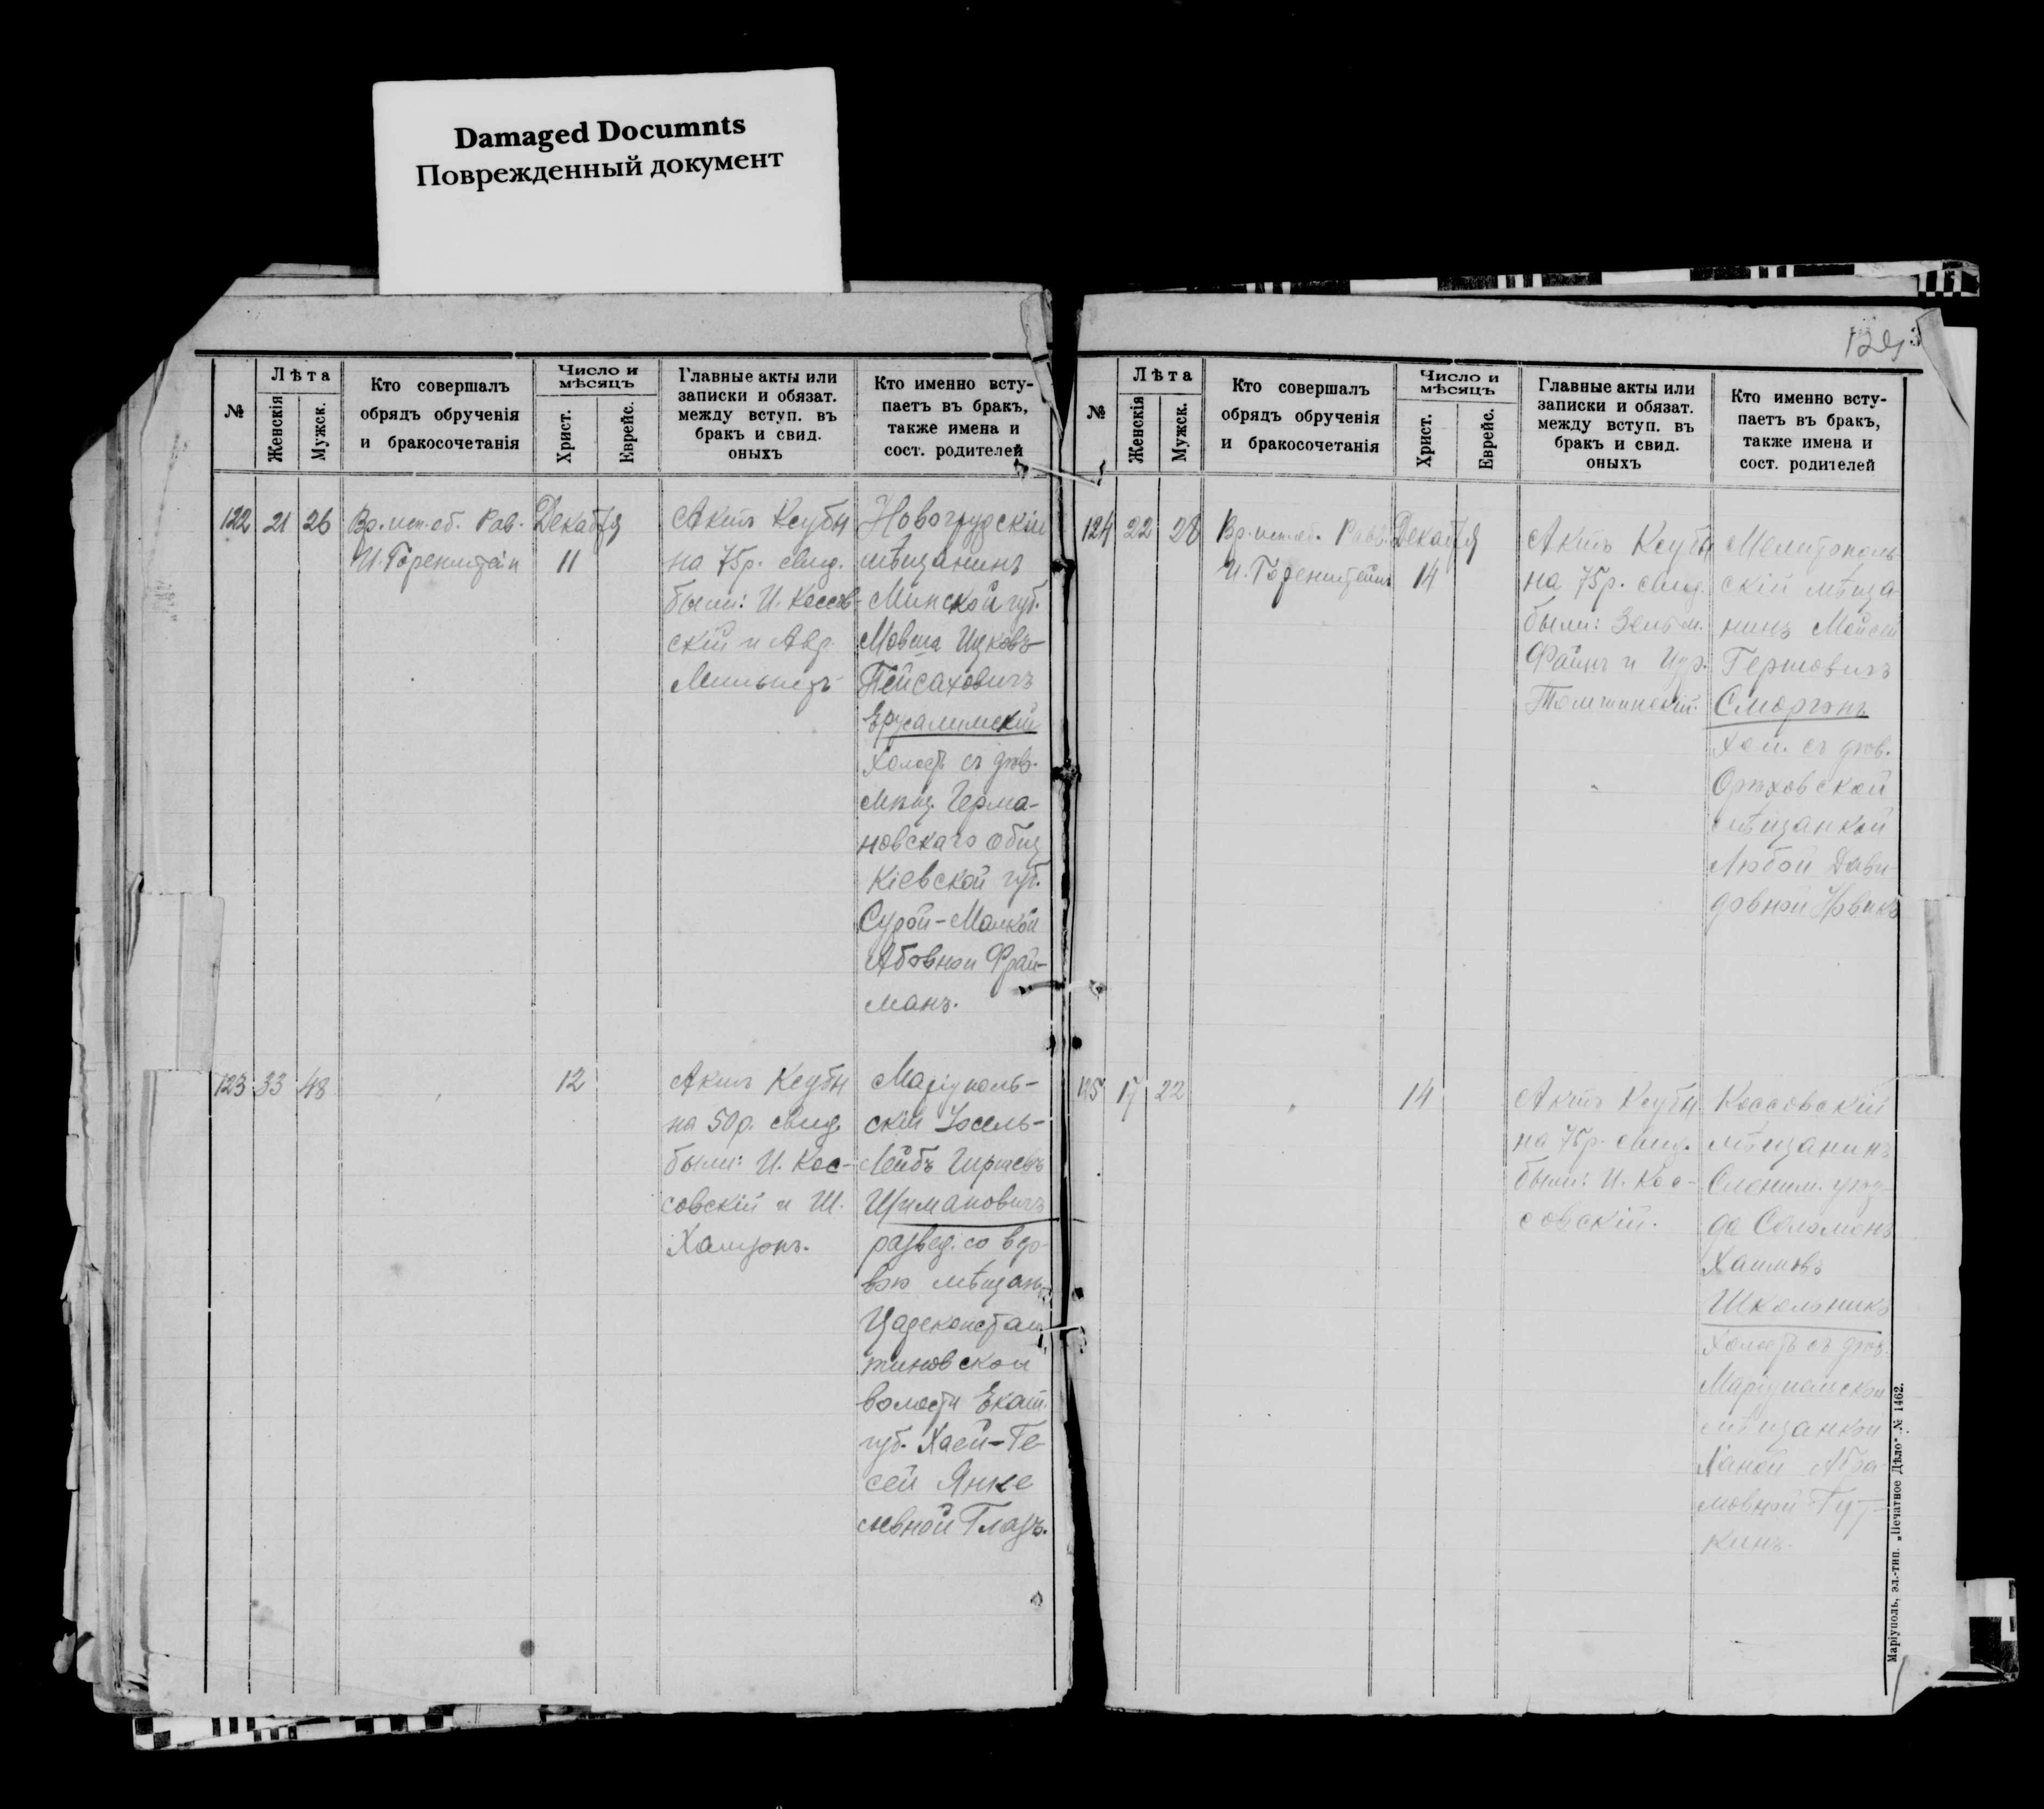 Damaged Documnts
Поврежденный документ
№
Лѣта
Женскія
Мужск.
Кто совершалъ
обрядъ обрученія
и бракосочетанія
Число и
мѣсяцъ
Христ.
Еврейс.
Главные акты или
записки и обязат.
между вступ. въ
бракъ и свид.
оныхъ
Кто именно всту-
паетъ въ бракъ,
также имена и
сост. родителей
122 21 26
Вр. исп. об. Рав.
И. Горенштейн
Декабря
11
Актъ Ксубы
на 75р. свид.
были: И. Коссов-
скій и Авр.
Новогрудскій
мѣщанинъ
Минской губ.
Мовша Ицковъ
Пейсаховичъ
Ерусалимскій
холост. съ дѣв.
мѣщ. Герма-
новскаго общ.
Кіевской губ.
Сурой-Малкой
Абовной Фрай-
манъ.
123 33 48
12
Актъ Ксубы
на 50р. свид.
были: И. Кос-
совскій и Ш.
Маріуполь-
скій Іосель-
Лейбъ Гиршевъ
Шимановичъ
развед. со вдо-
вою мѣщан.
Цареконстан
тиновской
волости Екат.
губ. Хаей-Ге-
сей Янке
левной Глазъ.
129
№
Лѣта
Женскія
Мужск.
Кто совершалъ
обрядъ обрученія
и бракосочетанія
Число и
мѣсяцъ
Христ.
Еврейс.
Главные акты или
записки и обязат.
между вступ. въ
бракъ и свид.
оныхъ
Кто именно всту-
паетъ въ бракъ,
также имена и
сост. родителей
124 22 28
Вр. исп. об. Равв.
И. Горенштейнъ
Декабря
14
Актъ Ксубы
на 75р. свид.
были: Зельм.
Файнъ и
Мелитополь
скій мѣща
нинъ Мойсей
Гершовичъ
Сморгонъ
хол. съ дѣв.
Орѣховской
мѣщанкой
Любой Дави-
довной Новикъ
125 17 22
14
Актъ Ксубы
на 75р. свид.
были: И. Кос-
совскій.
Коссовскій
мѣщанинъ
Слоним. уѣз-
да Соломонъ
Хаимовъ
Школьникъ
холостъ съ дѣв.
Маріупольской
мѣщанкой
Ханой Абра-
мовной Гут-
кинъ.
Маріуполь, эл.-тип. „Печатное Дѣло“ № 1462.